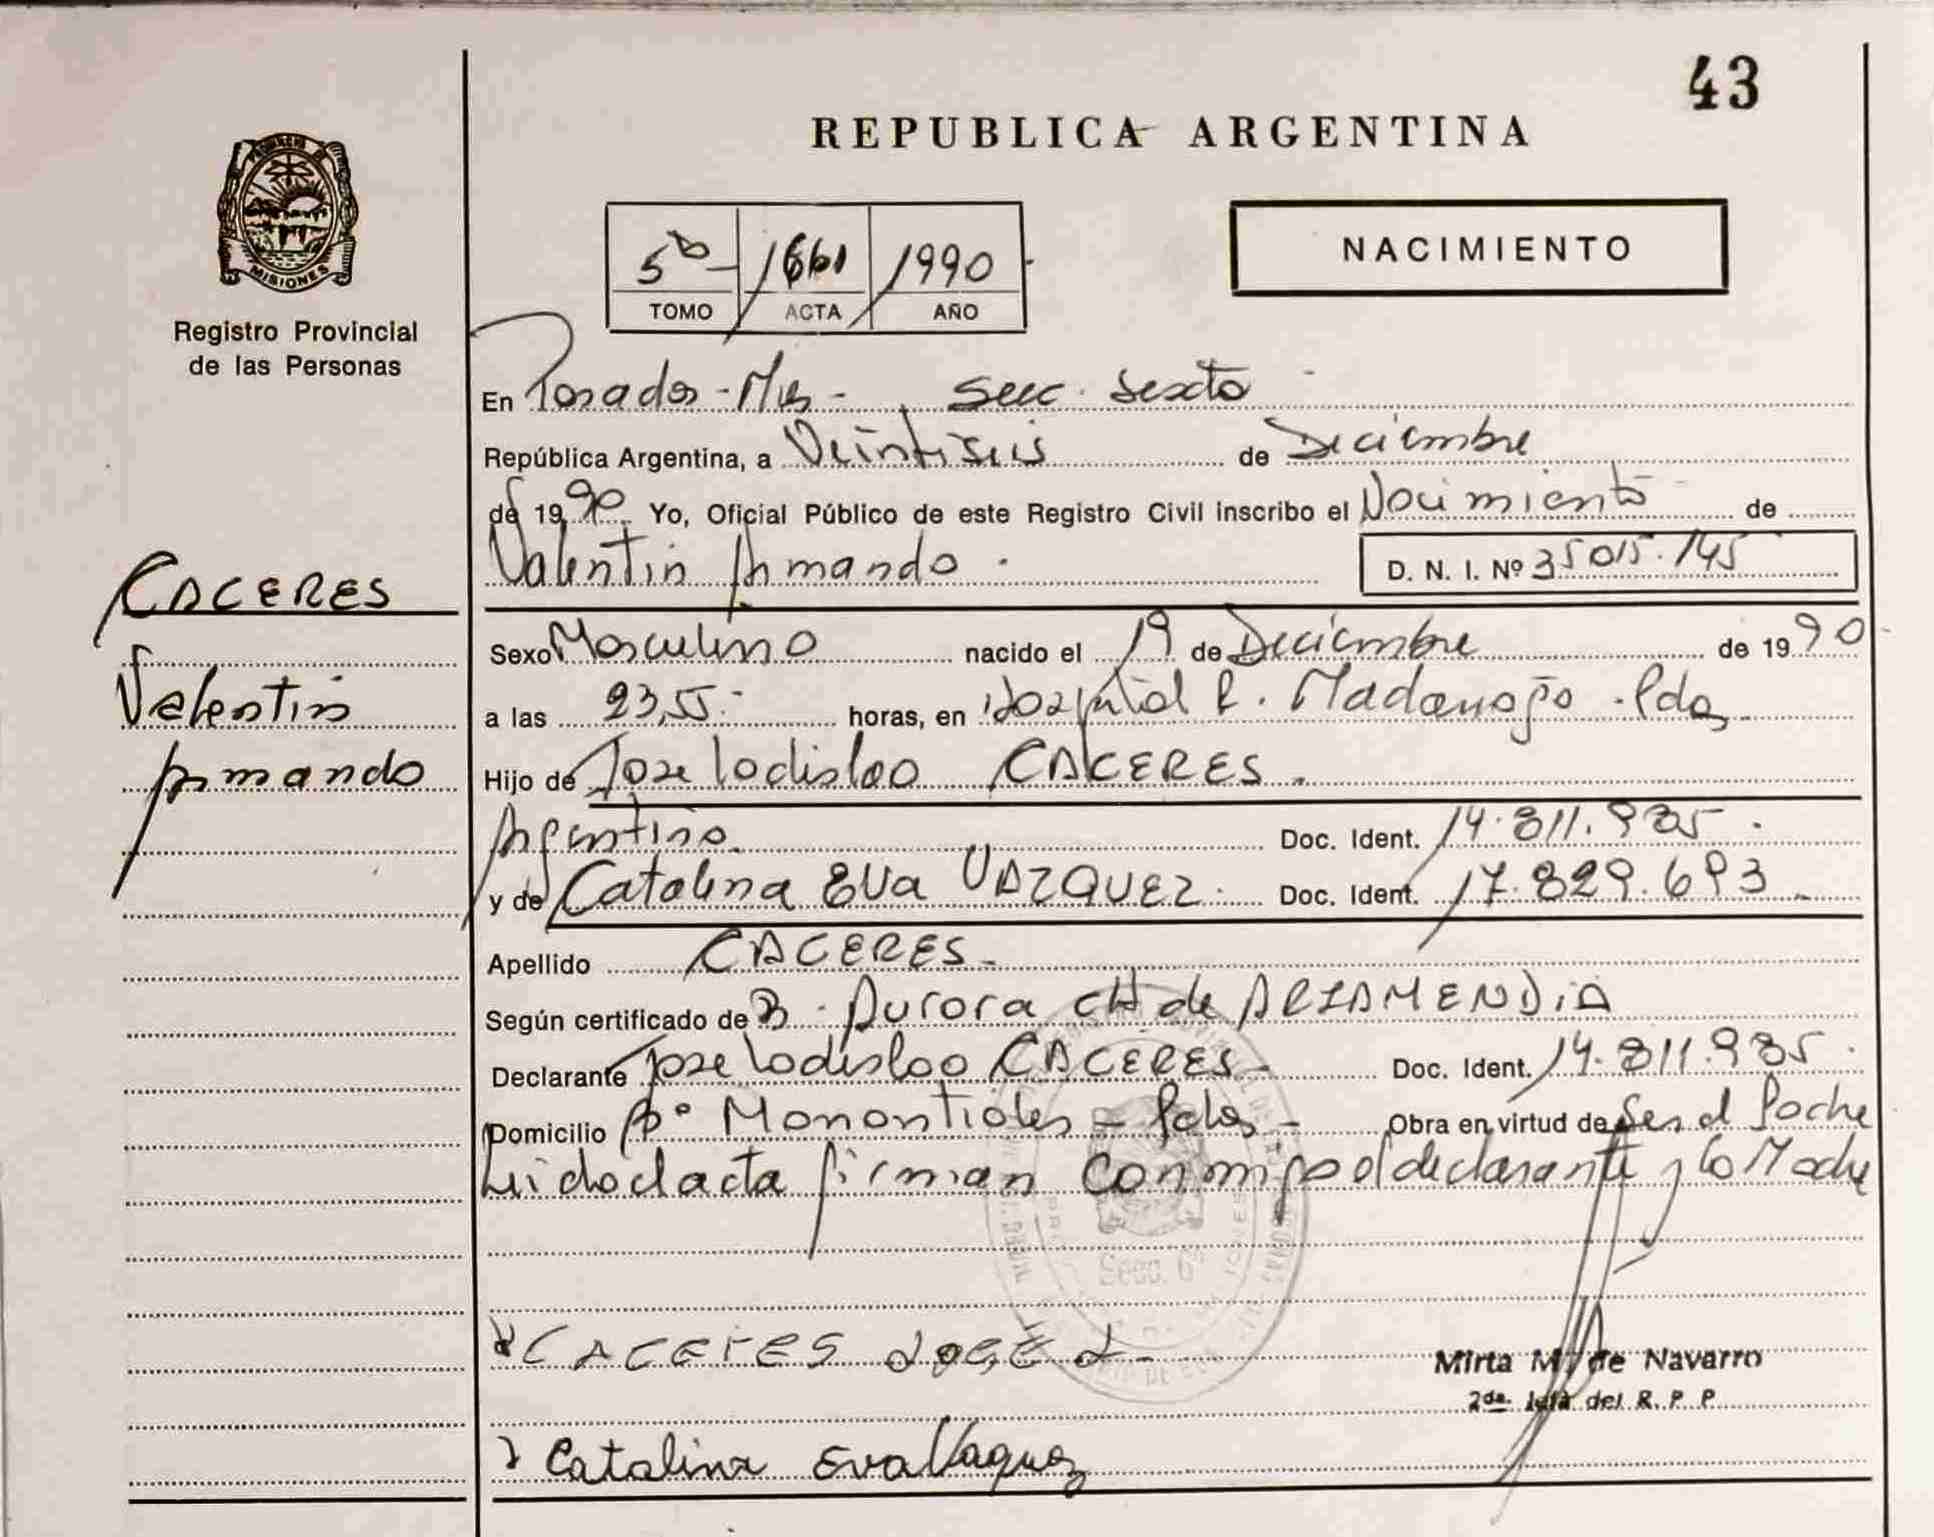 43
REPUBLICA ARGENTINA
PROVINCIA DE
MISIONES
Registro Provincial
de las Personas
NACIMIENTO
5º 1661 1990
TOMO ACTA AÑO
En Posadas - Mis - Secc. Sexta
República Argentina, a Veintiseis de Diciembre
de 1990 Yo, Oficial Público de este Registro Civil inscribo el Nacimiento de
Valentin Armando D. N. I. Nº 35015.145
CACERES
Valentin
Armando
Sexo Masculino nacido el 19 de Diciembre de 1990
a las 23,55 horas, en Hospital R. Madariaga - Pdas
Hijo de Jose Ladislao CACERES
Argentino Doc. Ident. 14.811.985
y de Catalina Eva VAZQUEZ Doc. Ident. 17.829.693
Apellido CACERES
Según certificado de Aurora CH de ARIZAMENDIA
Declarante Jose Ladislao CACERES Doc. Ident. 14.811.985
Domicilio Bº Manantiales - Pdas - Obra en virtud de Ser el Padre
Leida el acta firman conmigo el declarante y la Madre
Secc. 6ª
CACERES JOSÉ L.
Mirta M. de Navarro
2da. Jefa del R. P. P
Catalina Eva Vaquez